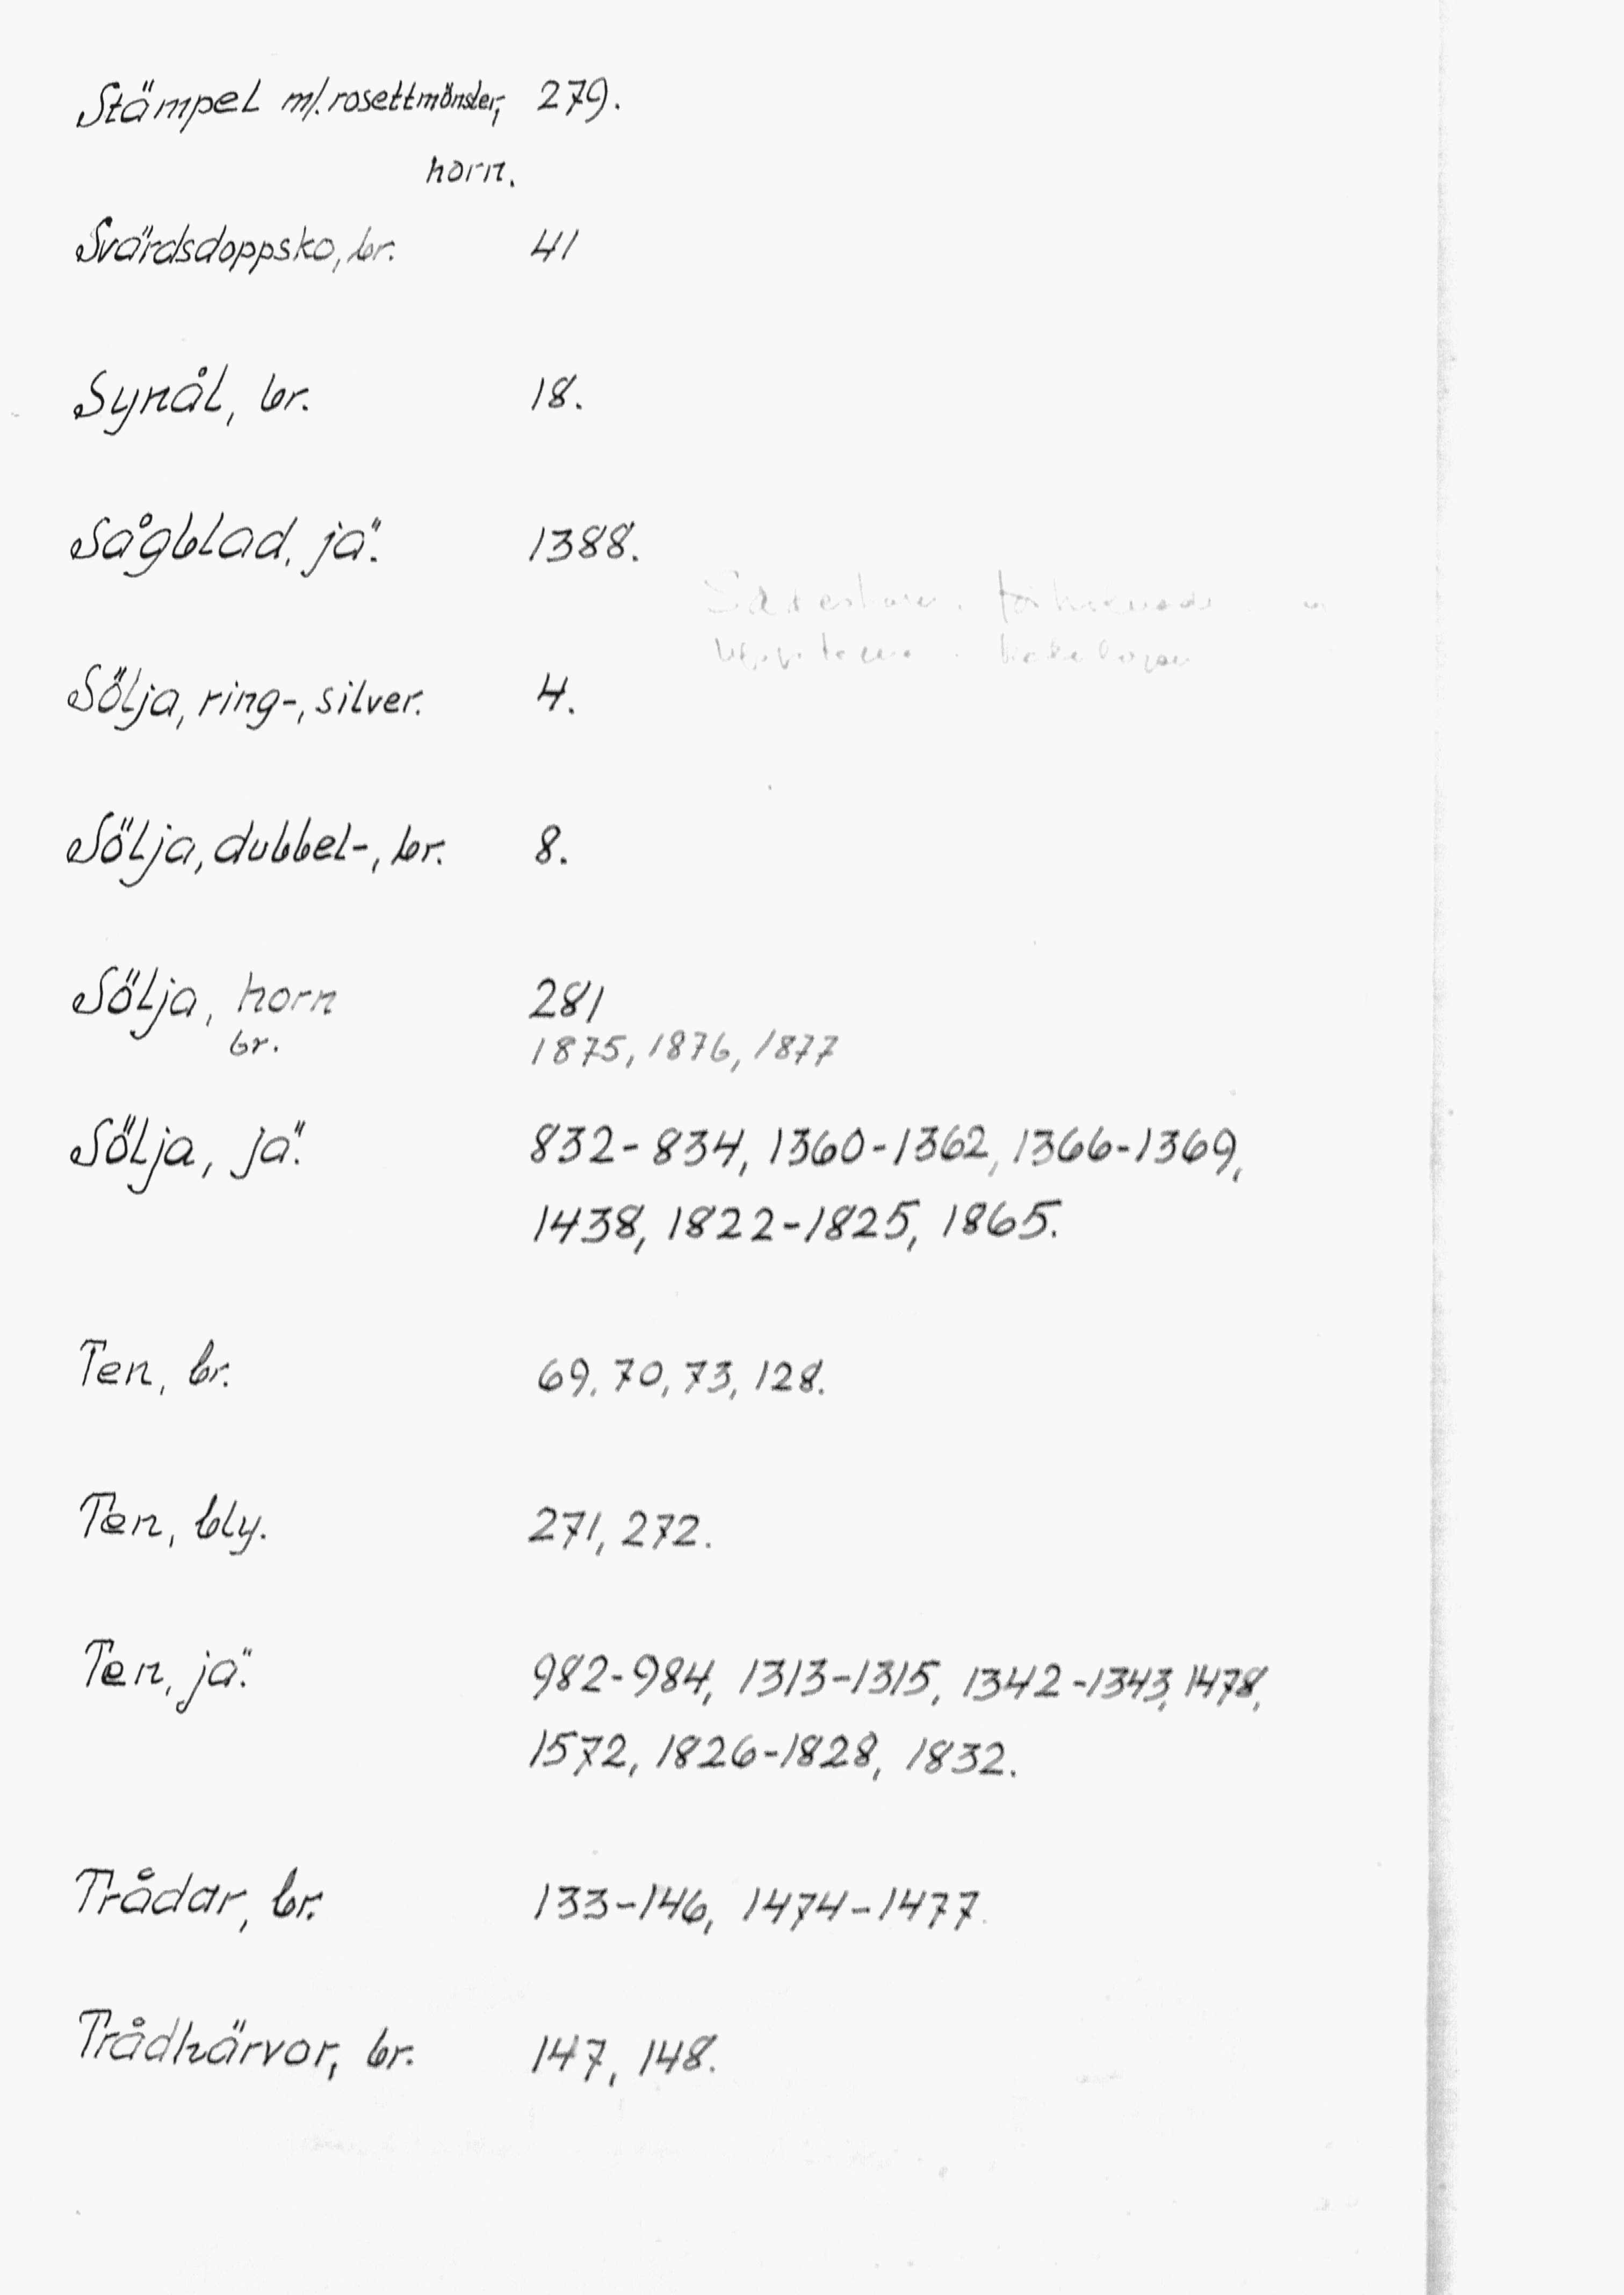 Stämpel m/. rosettmönster, 279.
horn.
Svärdsdoppsko, br. 41
Synål, br. 18.
Sågblad, jä. 1388.
Sölja, ring-, silver. 4.
Sölja, dubbel-, br. 8.
Sölja, horn 281
br. 1875, 1876, 1877
Sölja, jä. 832-834, 1360-1362, 1366-1369,
1438, 1822-1825, 1865.
Ten, br. 69, 70, 73, 128.
Ten, bly. 271, 272.
Ten, jä. 982-984, 1313-1315, 1342-1343, 1478,
1572, 1826-1828, 1832.
Trådar, br. 133-146, 1474-1477.
Trådhärvor, br. 147, 148.